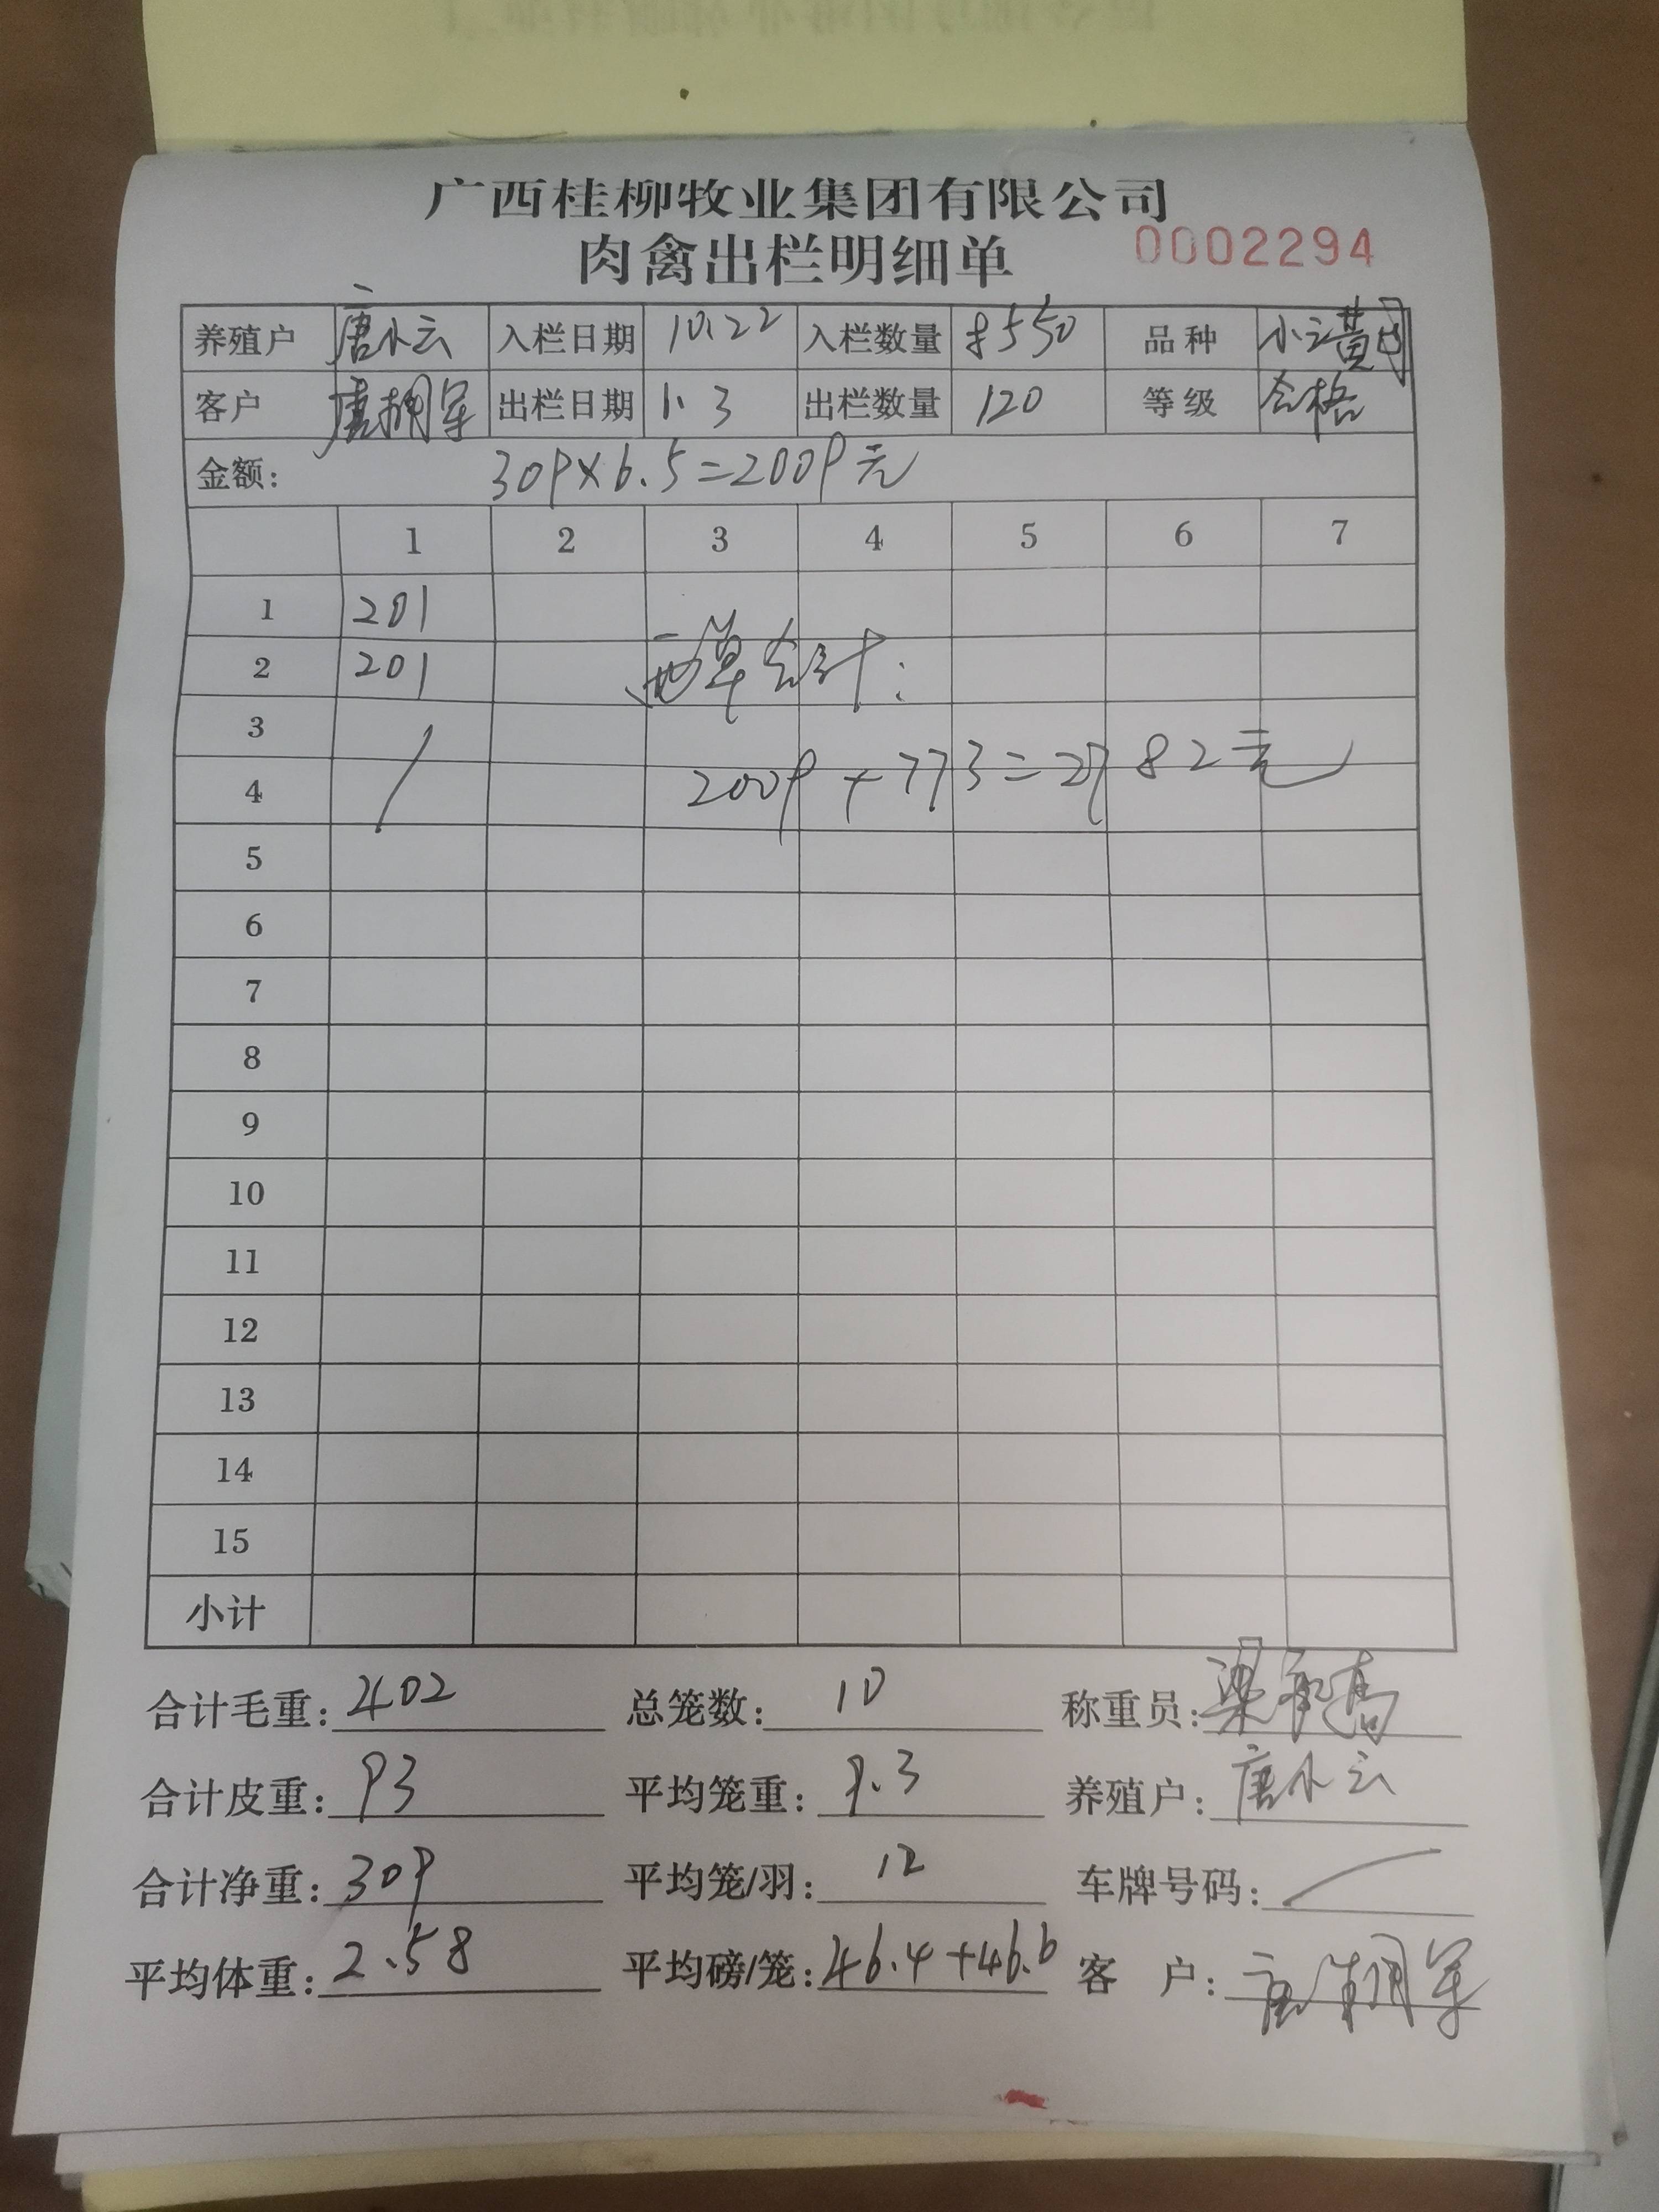 广西桂柳牧业集团有限公司
肉禽出栏明细单 0002294
养殖户 唐小云 入栏日期 10.22 入栏数量 8550 品种 小黄
客户 唐 军 出栏日期 1.3 出栏数量 120 等级 合格
金额: 309×6.5=2009元
1 2 3 4 5 6 7
1 201
2 201 两单合计:
3
4 2009+773=2782元
5
6
7
8
9
10
11
12
13
14
15
小计
合计毛重: 402 总笼数: 10 称重员: 梁 高
合计皮重: 93 平均笼重: 9.3 养殖户: 唐小云
合计净重: 309 平均笼/羽: 12 车牌号码:
平均体重: 2.58 平均磅/笼: 46.4+46.6 客 户: 唐 军